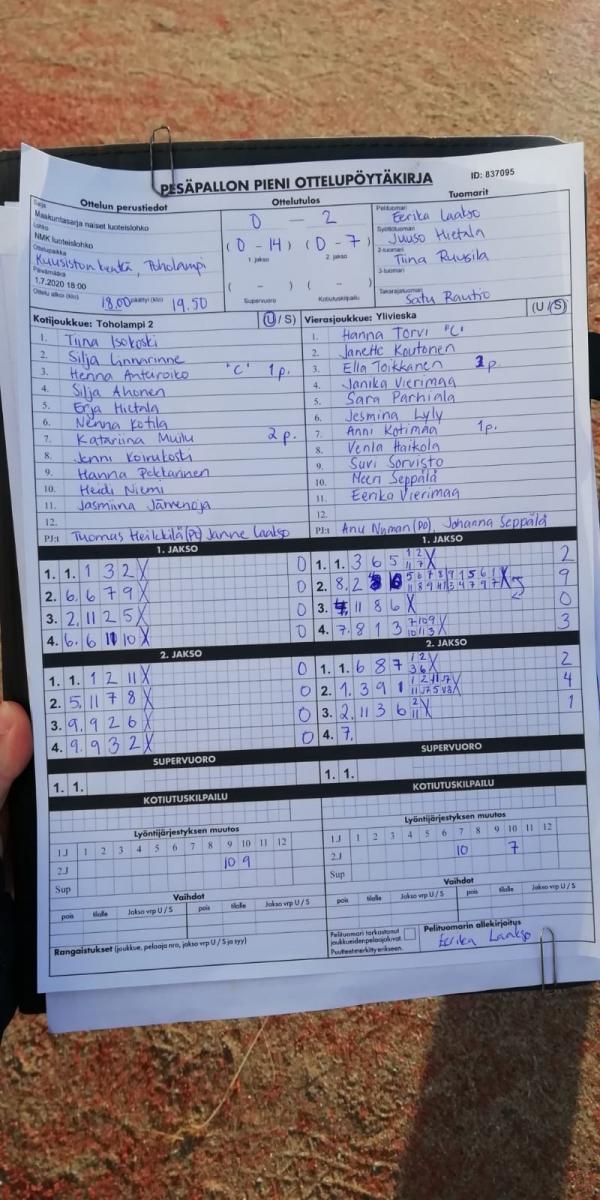 PESÄPALLON PIENI OTTELUPÖYTÄKIRJA
ID: 837095
Ottelun perustiedot
Sarja
Maakuntasarja naiset luoteislohko
Lohko
NMK luoteislohko
Ottelupaikka
Kuusiston kenttä, Toholampi
Päivämäärä
1.7.2020 18:00
Ottelu alkoi (klo) 18.00 päättyi (klo) 19.50
Ottelutulos
0 – 2
(0 - 14) (0 - 7)
1. jakso 2. jakso
( - ) ( - )
Supervuoro Kotiutuskilpailu
Tuomarit
Pelituomari
Eerika Laakso
Syöttötuomari
Juuso Hietala
2-tuomari
Tiina Ruusila
3-tuomari
Takarajatuomari
Satu Rautio
Kotijoukkue: Toholampi 2 (U / S)
1. Tiina Isokoski
2. Silja Linnarinne
3. Henna Anturoiko "C" 1 p.
4. Silja Ahonen
5. Erja Hietala
6. Nenna Kotila
7. Katariina Muilu 2 p.
8. Jenni Koirukoski
9. Hanna Pekkarinen
10. Heidi Niemi
11. Jasmiina Järvenoja
12.
PJ:t Tuomas Heikkilä (PJ) Janne Laakso
Vierasjoukkue: Ylivieska (U / S)
1. Hanna Torvi "C"
2. Janette Koutonen
3. Ella Toikkanen 3 p.
4. Janika Vierimaa
5. Sara Parhiala
6. Jesmina Lyly
7. Anni Kotimaa 1 p.
8. Venla Haikola
9. Suvi Sorvisto
10. Meeri Seppälä
11. Eerika Vierimaa
12.
PJ:t Anu Nyman (PJ), Johanna Seppälä
1. JAKSO
1. 1. 1 3 2 X 0
2. 6. 6 7 9 X 0
3. 2. 11 2 5 X 0
4. 6. 6 11 10 X 0
2. JAKSO
1. 1. 1 2 11 X 0
2. 5. 11 7 8 X 0
3. 9. 9 2 6 X 0
4. 9. 9 3 2 X 0
SUPERVUORO
1. 1.
KOTIUTUSKILPAILU
1. JAKSO
1. 1. 3 6 5 1 2 X 2
11 7
2. 8. 2 9
3. 11 8 6 X 0
4. 7. 8 1 3 7 10 9 X 3
10 11 3
2. JAKSO
1. 1. 6 8 7 1 2 X 2
3 6
2. 1. 3 9 1 4
3. 2. 11 3 6 2 X 1
11
4. 7.
SUPERVUORO
1. 1.
KOTIUTUSKILPAILU
Lyöntijärjestyksen muutos
1.J 1 2 3 4 5 6 7 8 9 10 11 12
2.J 10 9
Sup
Vaihdot
pois tilalle Jakso vrp U / S pois tilalle Jakso vrp U / S
Rangaistukset (joukkue, pelaaja nro, jakso vrp U / S ja syy)
Lyöntijärjestyksen muutos
1.J 1 2 3 4 5 6 7 8 9 10 11 12
2.J 10 7
Sup
Vaihdot
pois tilalle Jakso vrp U / S pois tilalle Jakso vrp U / S
Pelituomari tarkastanut
joukkueiden pelaajaluvat.
Puutteet merkitty erikseen.
Pelituomarin allekirjoitus
Eerika Laakso